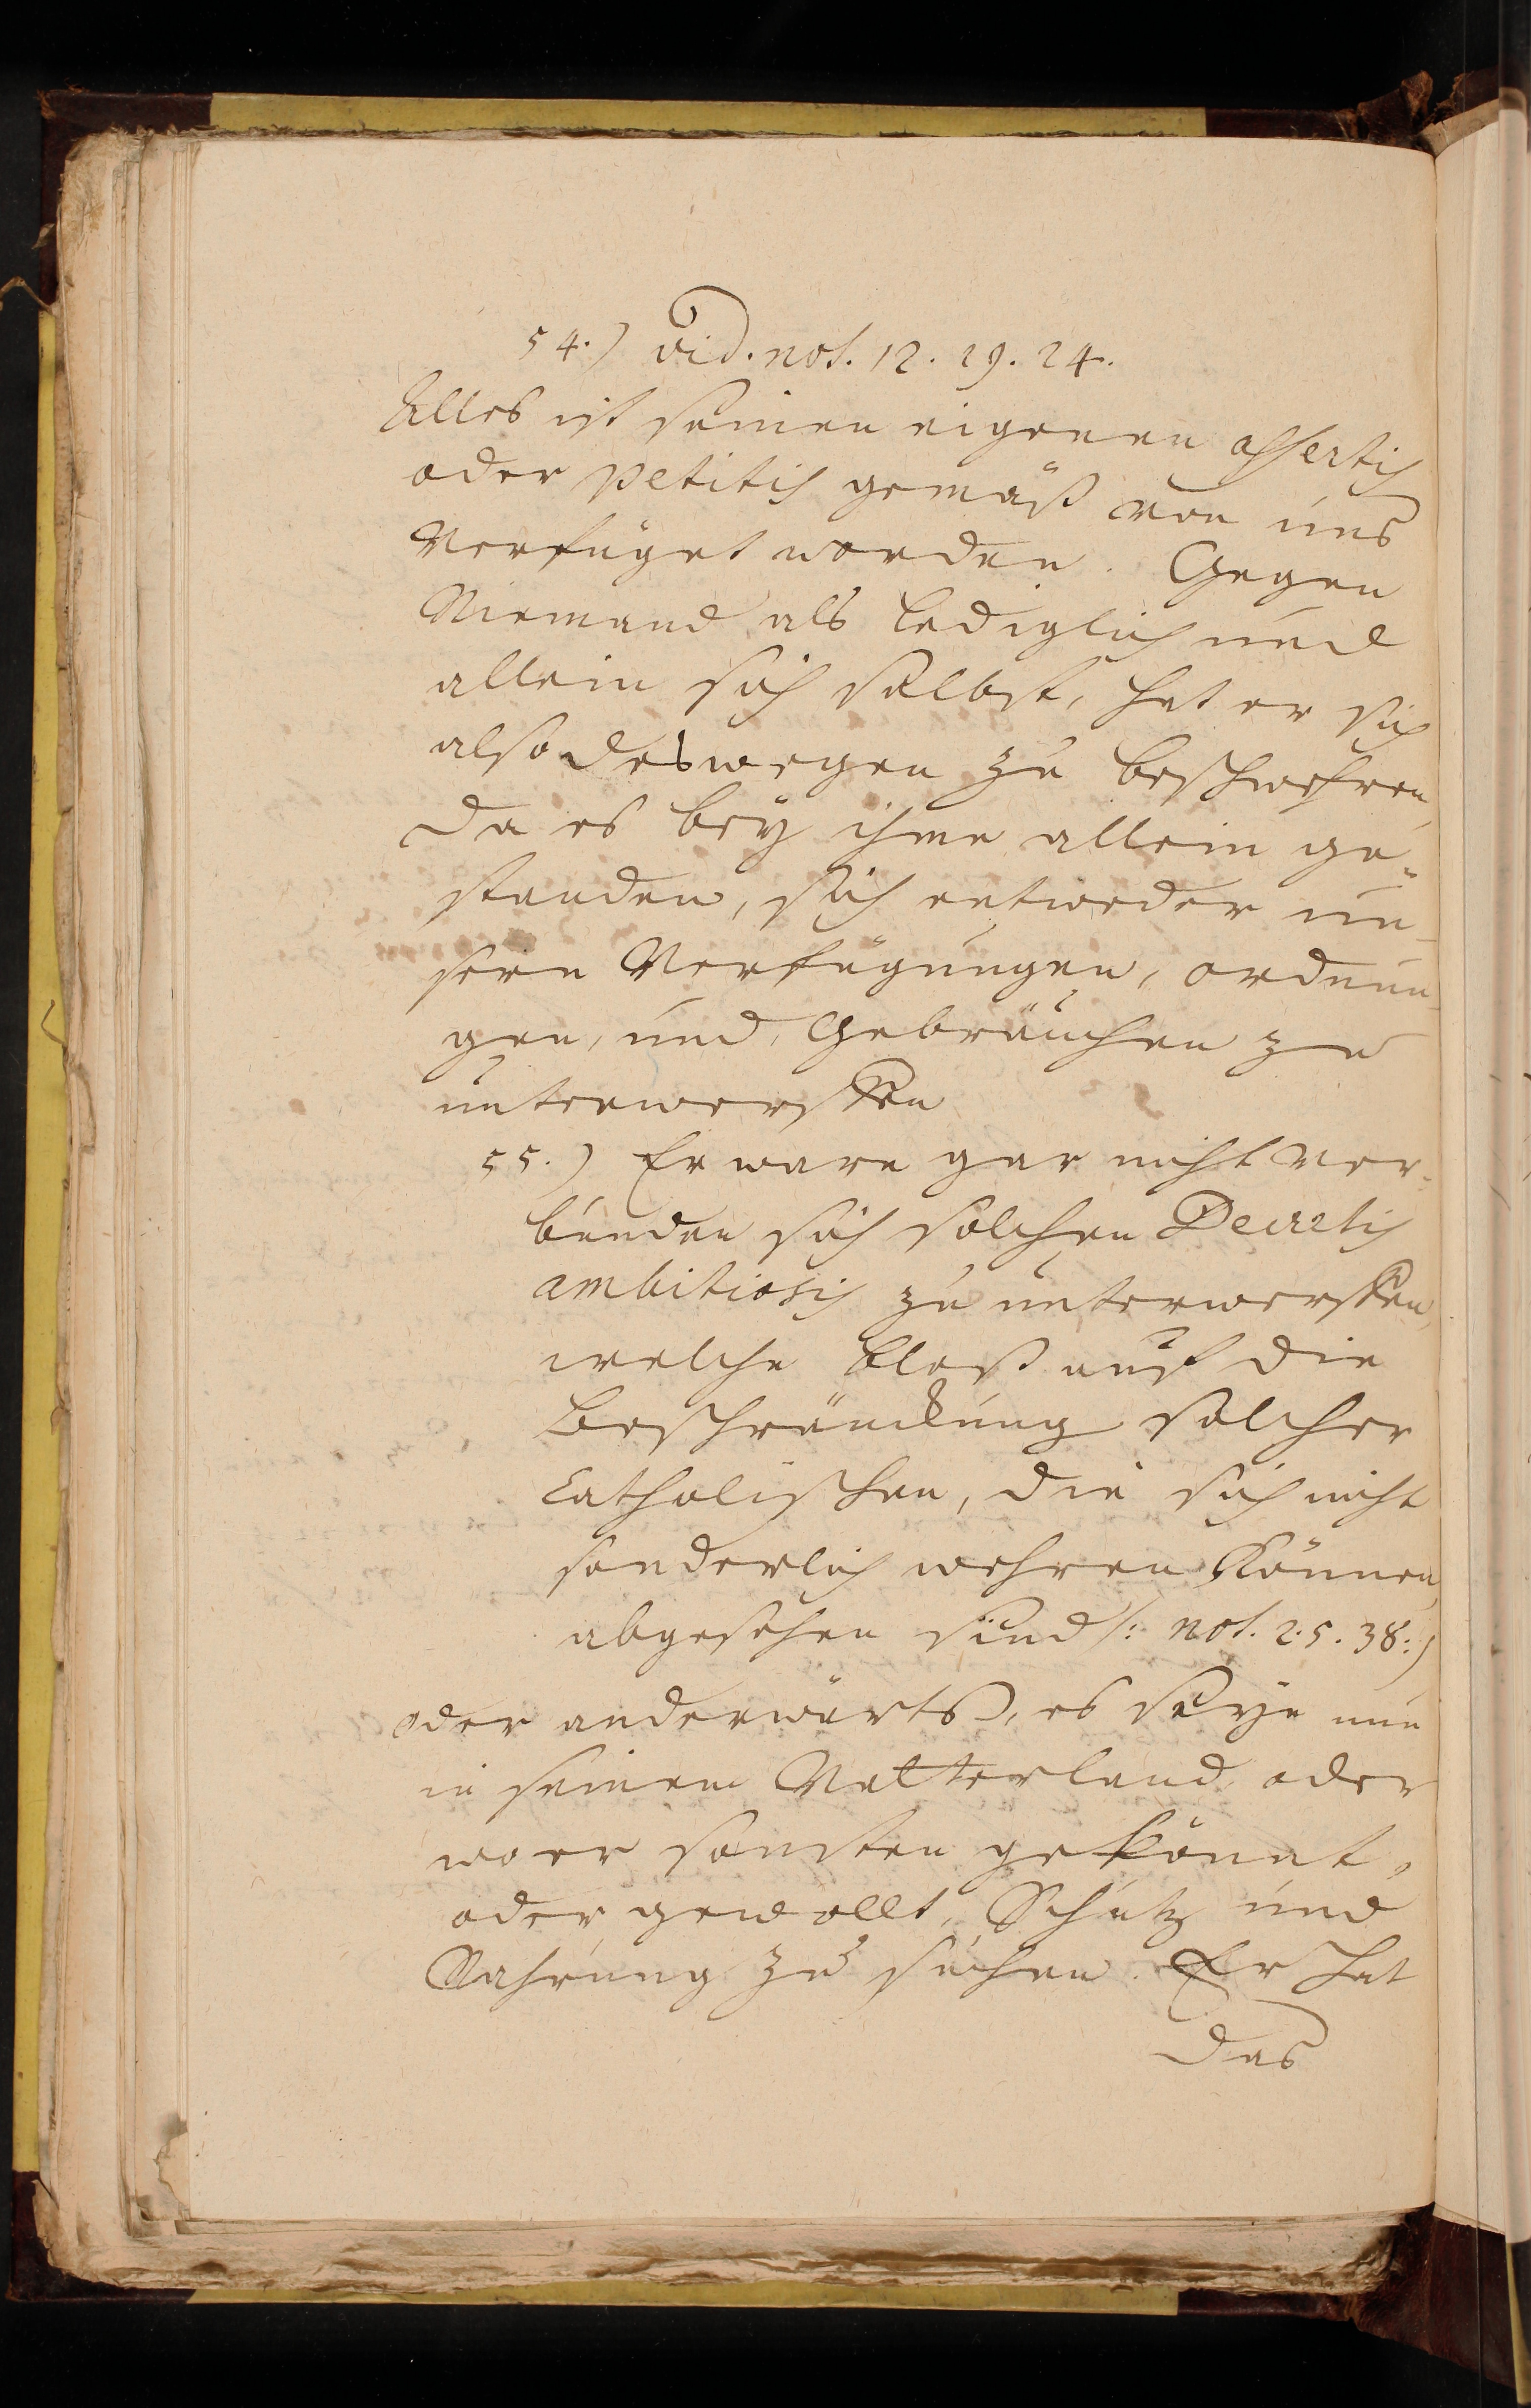 54.) vid. not. 12. 29. 24.
Alles ist seinen eigenen assertis
oder petitis gemäß von uns
Verfüget worden. Gegen
Niemand als lediglich und
allein sich selbst, hat er sich
also deswegen zu beschwehren,
da es bey ihme allein ge-
standen, sich entweder un-
sern Verfügungen, ordnun-
gen, und Gebräuchen zu
unterwerffen
55.) Er ware gar nicht ver-
bunden sich solchen Decretis
ambitiosis zu unterwerffen,
welche bloß auf die
Beschränckung solcher
Catholischen, die sich nicht
sonderlich wehren können,
abgesehen sind /: not. 2. 5. 38:/
oder anderwärts, es seye nun
in seinem Vatterland oder
wo er sonsten gekönnt,
oder gewollt, Schutz und
Nahrung zu suchen. Er hat
das